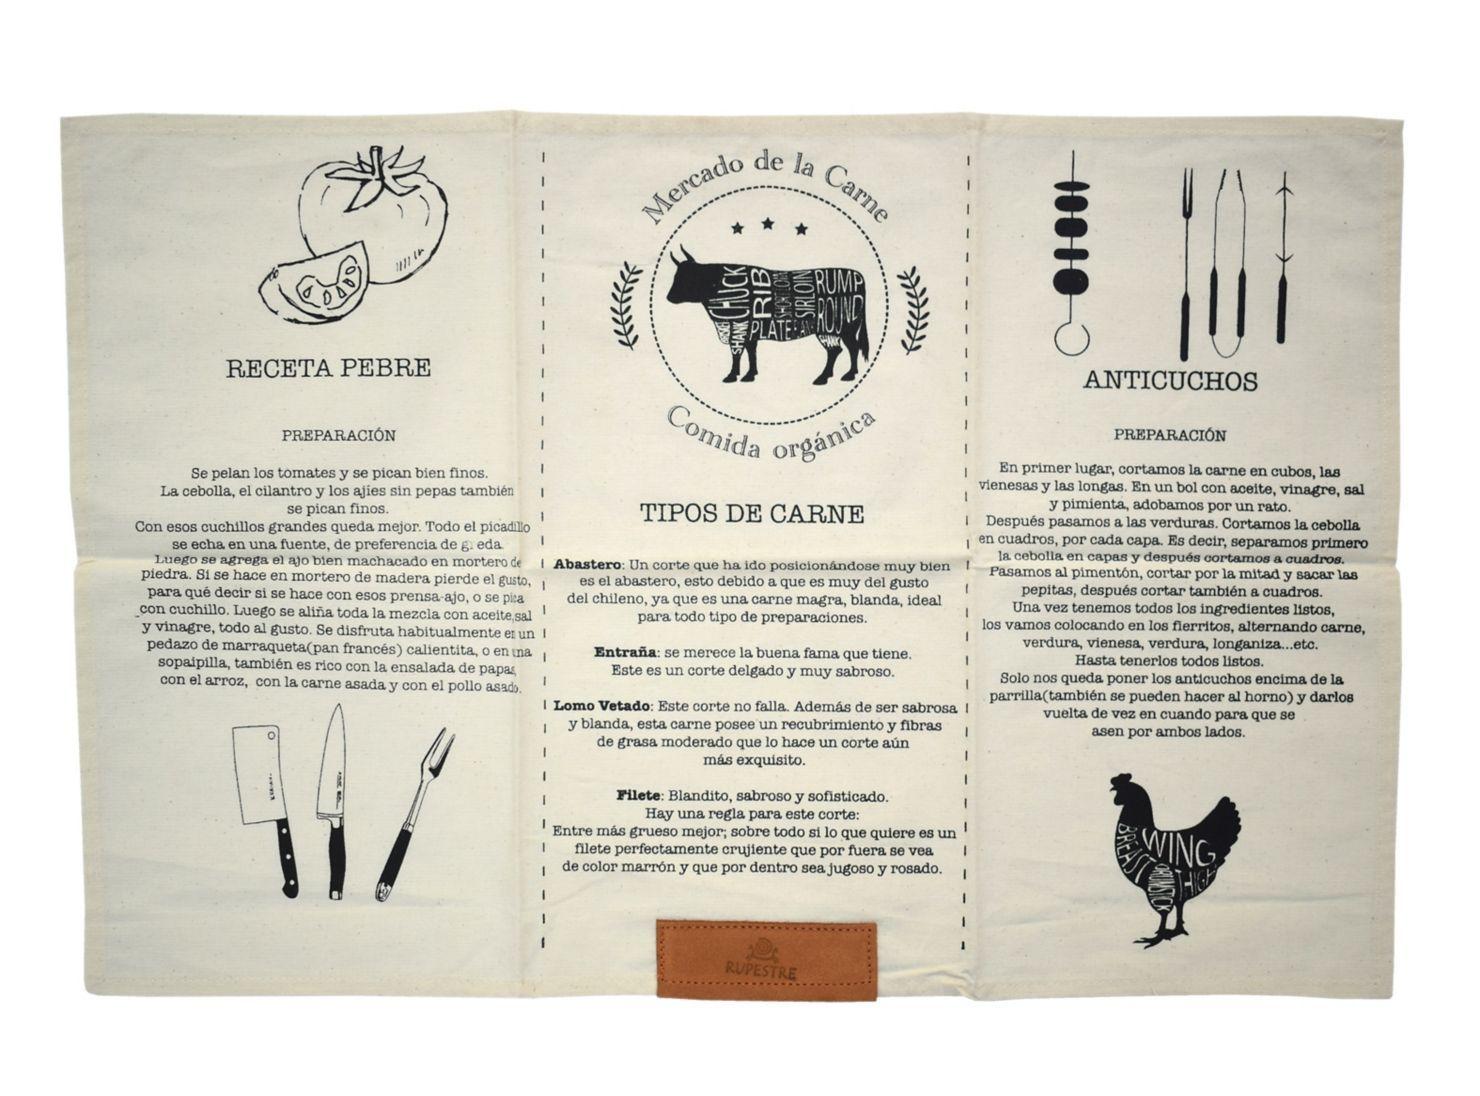 RECETA PEBRE
PREPARACIÓN
Se pelan los tomates y se pican bien finos.
La cebolla, el cilantro y los ajíes sin pepas también
se pican finos.
Con esos cuchillos grandes queda mejor. Todo el picadillo
se echa en una fuente, de preferencia de
Luego se agrega el ajo bien machacado en mortero de
piedra. Si se hace en mortero de madera pierde el gusto,
para qué decir si se hace con esos prensa-ajo, o se pica
con cuchillo. Luego se aliña toda la mezcla con aceite,sal
y vinagre, todo al gusto. Se disfruta habitualmente en un
pedazo de marraqueta(pan francés) calientita, o en una
sopaipilla, también es rico con la ensalada de papas,
con el arroz, con la carne asada y con el pollo asado.
Mercado de la Carne
CHUCK
RIB
SHORT LOIN
SIRLOIN
RUMP
ROUND
SHANK
PLATE
SHANK
Comida orgánica
TIPOS DE CARNE
Abastero: Un corte que ha ido posicionándose muy bien
es el abastero, esto debido a que es muy del gusto
del chileno, ya que es una carne magra, blanda, ideal
para todo tipo de preparaciones.
Entraña: se merece la buena fama que tiene.
Este es un corte delgado y muy sabroso.
Lomo Vetado: Este corte no falla. Además de ser sabrosa
y blanda, esta carne posee un recubrimiento y fibras
de grasa moderado que lo hace un corte aún
más exquisito.
Filete: Blandito, sabroso y sofisticado.
Hay una regla para este corte:
Entre más grueso mejor; sobre todo si lo que quiere es un
filete perfectamente crujiente que por fuera se vea
de color marrón y que por dentro sea jugoso y rosado.
RUPESTRE
ANTICUCHOS
PREPARACIÓN
En primer lugar, cortamos la carne en cubos, las
vienesas y las longas. En un bol con aceite, vinagre, sal
y pimienta, adobamos por un rato.
Después pasamos a las verduras. Cortamos la cebolla
en cuadros, por cada capa. Es decir, separamos primero
la cebolla en capas y después cortamos a cuadros.
Pasamos al pimentón, cortar por la mitad y sacar las
pepitas, después cortar también a cuadros.
Una vez tenemos todos los ingredientes listos,
los vamos colocando en los fierritos, alternando carne,
verdura, vienesa, verdura, longaniza...etc.
Hasta tenerlos todos listos.
Solo nos queda poner los anticuchos encima de la
parrilla(también se pueden hacer al horno) y darlos
vuelta de vez en cuando para que se
asen por ambos lados.
BREAST
WING
THIGH